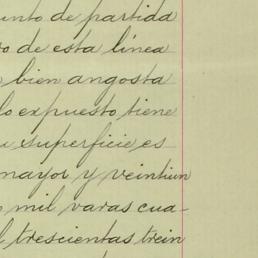 unto de partida
o de esta línea
bien angosta
lo expuesto tiene
u superficie es
mayor y veintiun
mil varas cua-
l trescientas trein